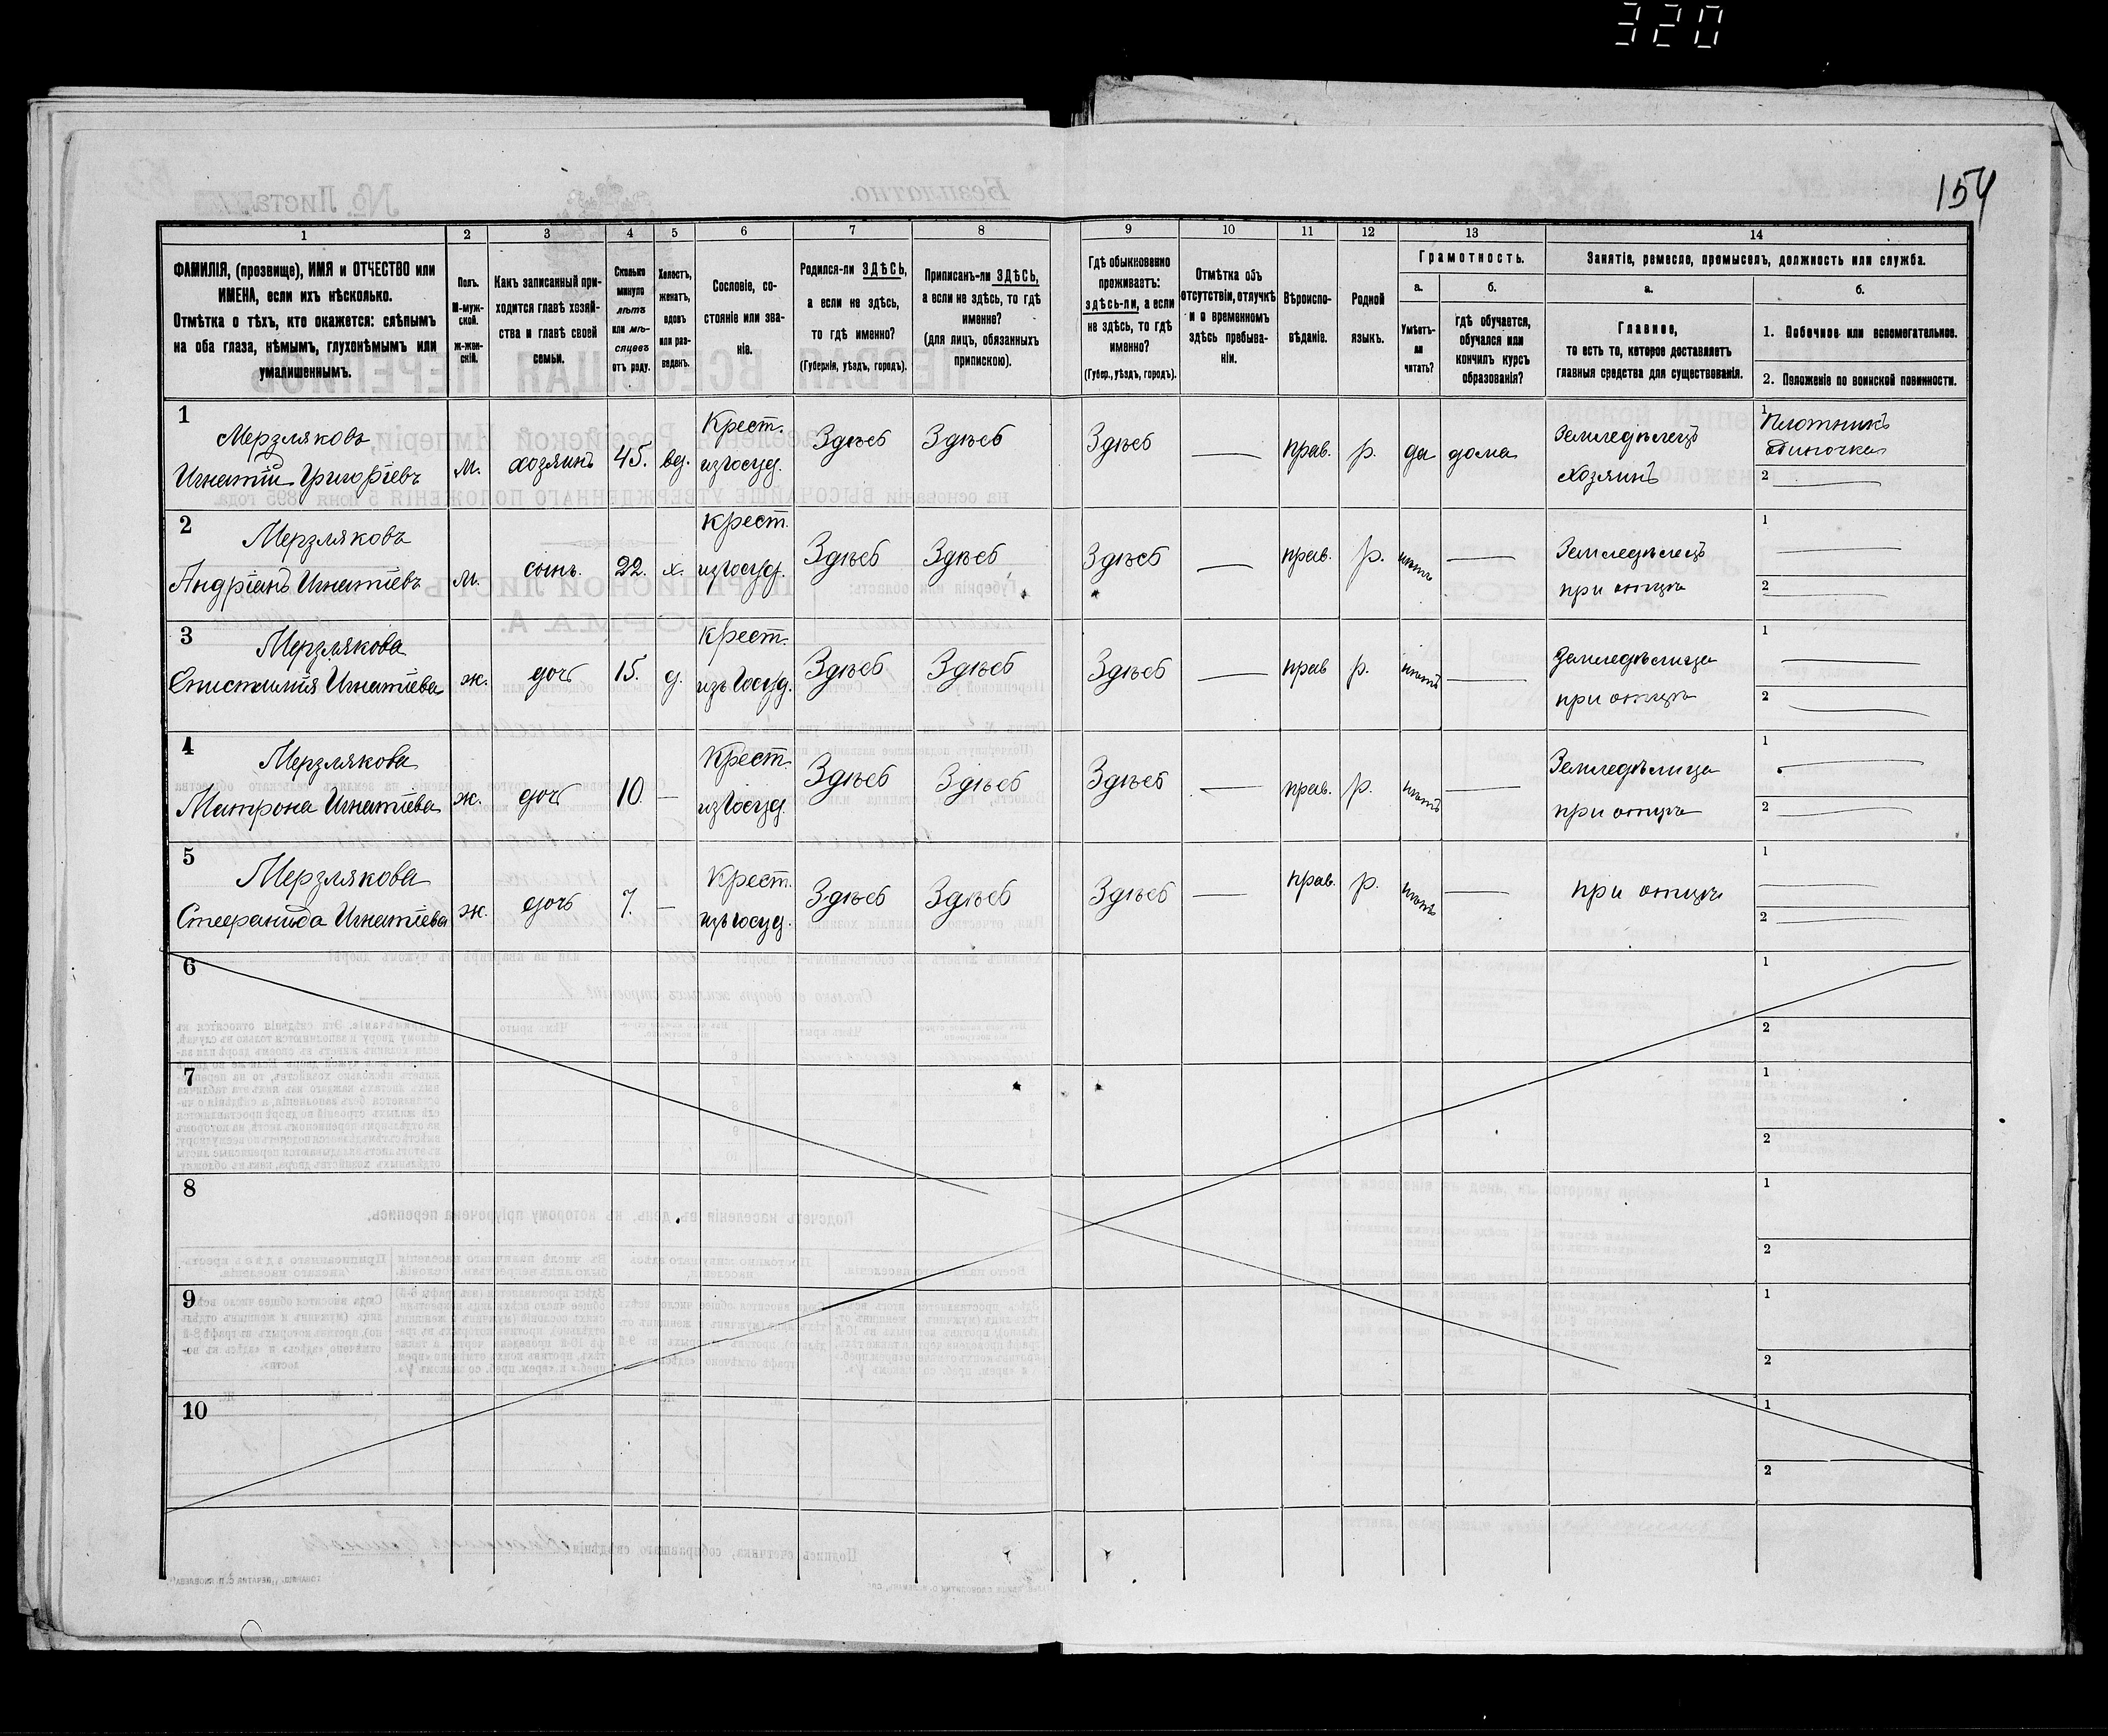 320
154
Безплатно.
№ Листа
1 2 3 4 5 6 7 8 9 10 11 12 13 14
ФАМИЛІЯ, (прозвище), ИМЯ и ОТЧЕСТВО или
ИМЕНА, если ихъ нѣсколько.
Отмѣтка о тѣхъ, кто окажется: слѣпымъ
на оба глаза, нѣмымъ, глухонѣмымъ или
умалишеннымъ.
Полъ.
М-муж-
ской.
Ж-жен-
скій.
Какъ записанный при-
ходится главѣ хозяй-
ства и главѣ своей
семьи.
Сколько
минуло
лѣтъ
или мѣ-
сяцевъ
отъ роду.
Холостъ,
женатъ,
вдовъ
или раз-
веденъ.
Сословіе, со-
стояніе или зва-
ніе.
Родился-ли ЗДѢСЬ,
а если не здѣсь,
то гдѣ именно?
(Губернія, уѣздъ, городъ).
Приписанъ-ли ЗДѢСЬ,
а если не здѣсь, то гдѣ
именно?
(для лицъ, обязанныхъ
припискою).
Гдѣ обыкновенно
проживаетъ:
здѣсь-ли, а если
не здѣсь, то гдѣ
именно?
(Губер., уѣздъ, городъ).
Отмѣтка объ
отсутствіи, отлучкѣ
и о временномъ
здѣсь пребыва-
ніи.
Вѣроиспо-
вѣданіе.
Родной
языкъ.
Грамотность.
а.
Умѣетъ-
ли
читать?
б.
гдѣ обучается,
обучался или
кончилъ курсъ
образованія?
Занятіе, ремесло, промыселъ, должность или служба.
а.
Главное,
то есть то, которое доставляетъ
главныя средства для существованія.
б.
1. Побочное или вспомогательное.
2. Положеніе по воинской повинности.
1
Мерзляковъ Крест. Здѣсь Здѣсь Здѣсь Земледѣлецъ 1 Плотникъ
Игнатій Григоріевъ м. хозяинъ 45. вд. изъ госуд. — прав. р. да дома Хозяинъ одиночка
2 —
2
Мерзляковъ Крест. Здѣсь Здѣсь Здѣсь Земледѣлецъ 1 —
Андріанъ Игнатіевъ м. сынъ 22. х. изъ госуд. — прав. р. нѣтъ — при отцѣ 2 —
3
Мерзлякова Крест. Здѣсь Здѣсь Здѣсь Земледѣлица 1 —
Епистимія Игнатіева ж. дочь 15. д. изъ госуд. — прав р. нѣтъ — при отцѣ 2 —
4
Мерзлякова Крест. Здѣсь Здѣсь Здѣсь Земледѣлица 1 —
Матрона Игнатіева ж. дочь 10. — изъ госуд. — прав. р. нѣтъ — при отцѣ 2 —
5
Мерзлякова Крест. Здѣсь Здѣсь Здѣсь при отцѣ 1 —
Стефанида Игнатіева ж. дочь 7. — изъ госуд. — прав. р. нѣтъ — 2 —
6 1
2
7 1
2
8 1
2
9 1
2
10 1
2